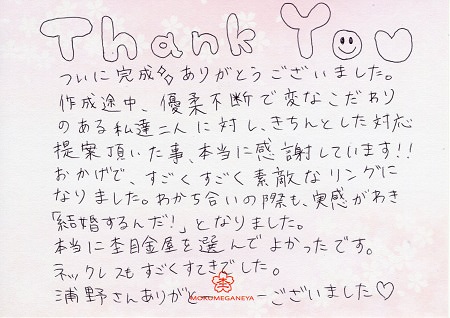 Thank You
ついに完成!! ありがとうございました。
作成途中、優柔不断で変なこだわり
のある私達二人に対し、きちんとした対応
提案頂いた事、本当に感謝しています!!
おかげで、すごくすごく素敵なリングに
なりました。わかち合いの際も、実感がわき
「結婚するんだ!」となりました。
本当に杢目金屋を選んでよかったです。
ネックレスもすごくすてきでした。
浦野さんありがとーーございました♡
MOKUMEGANEYA